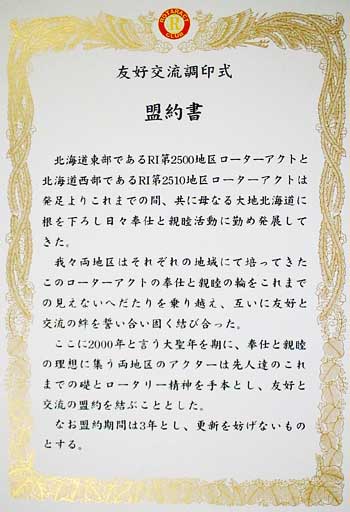 ROTARACT
R
CLUB
友好交流調印式
盟約書
北海道東部であるRI第2500地区ローターアクトと
北海道西部であるRI第2510地区ローターアクトは
発足よりこれまでの間、共に母なる大地北海道に
根を下ろし日々奉仕と親睦活動に勤め発展して
きた。
我々両地区はそれぞれの地域にて培ってきた
このローターアクトの奉仕と親睦の輪をこれまで
の見えないへだたりを乗り越え、互いに友好と
交流の絆を誓い合い固く結び合った。
ここに2000年と言う大聖年を期に、奉仕と親睦
の理想に集う両地区のアクターは先人達のこれ
までの礎とロータリー精神を手本とし、友好と
交流の盟約を結ぶこととした。
なお盟約期間は3年とし、更新を妨げないもの
とする。